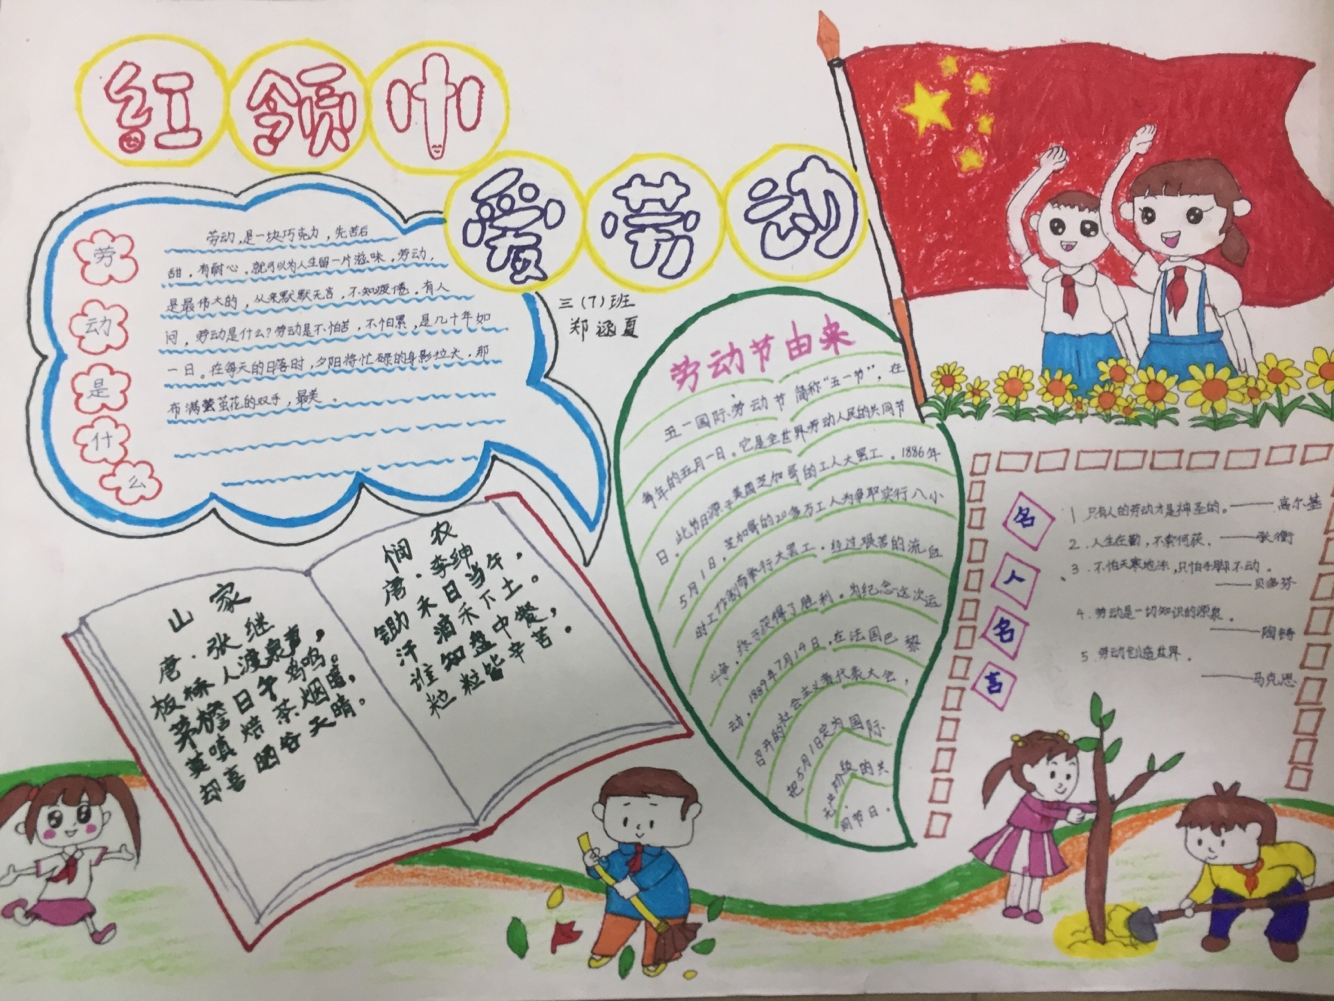 红领巾
爱劳动
三(7)班
郑涵夏
劳动是什么
劳动,是一块巧克力,先苦后
甜,有耐心,就可以为人生留一片滋味,劳动,
是最伟大的,从来默默无言,不知疲倦。有人
问,劳动是什么?劳动是不怕苦,不怕累,是几十年如
一日。在每天的日落时,夕阳将忙碌的身影拉长,那
布满茧茧花的双手,最美。
山家
唐·张继
板桥人渡泉声,
茅檐日午鸡鸣。
莫嗔焙茶烟暗,
却喜晒谷天晴。
悯农
唐·李绅
锄禾日当午,
汗滴禾下土。
谁知盘中餐,
粒粒皆辛苦。
劳动节由来
五一国际劳动节简称“五一节”,在
每年的五月一日。它是全世界劳动人民的共同节
日。此节日源于美国芝加哥的工人大罢工。1886年
5月1日,芝加哥的20多万工人为争取实行八小
时工作制而举行大罢工,经过艰苦的流血
斗争,终于获得了胜利。为纪念这次运
动,1889年7月14日,在法国巴黎
召开的社会主义者代表大会,
把5月1日定为国际
无产阶级的共
同节日。
名人名言
1 只有人的劳动才是神圣的。——高尔基
2. 人生在勤,不索何获。——张衡
3. 不怕天寒地冻,只怕手脚不动。
——贝洛芬
4. 劳动是一切知识的源泉。
——陶铸
5. 劳动创造世界。
——马克思